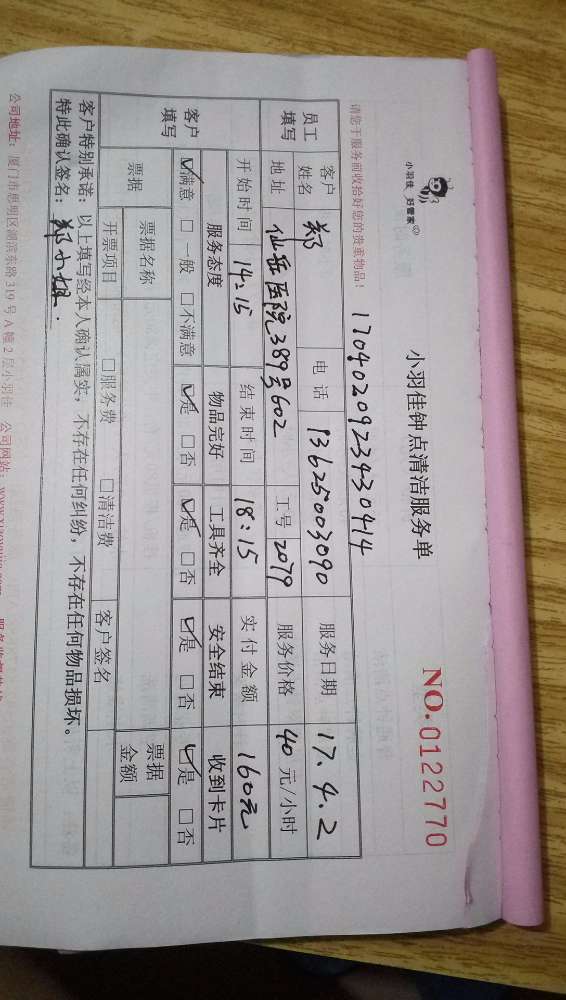 小羽佳 好管家
小羽佳钟点清洁服务单
NO.0122770
17040209234930414
请您于服务前收拾好您的贵重物品！
员工填写 客户姓名 郑 电话 13625003090 服务日期 17.4.2
地址 仙岳医院389号602 工号 2079 服务价格 40元/小时
开始时间 14:15 结束时间 18:15 实付金额 160元
客户填写 服务态度 物品完好 工具齐全 安全结束 收到卡片
☑满意 □一般 □不满意 ☑是 □否 ☑是 □否 ☑是 □否 ☑是 □否
票据 票据名称 票据金额
开票项目 □服务费 □清洁费 客户签名
客户特别承诺：以上填写经本人确认属实，不存在任何纠纷，不存在任何物品损坏。
特此确认签名：郑小姐.
公司地址：厦门市思明区湖滨东路319号A幢2层小羽佳 公司网站：www.xiaoyujia.com